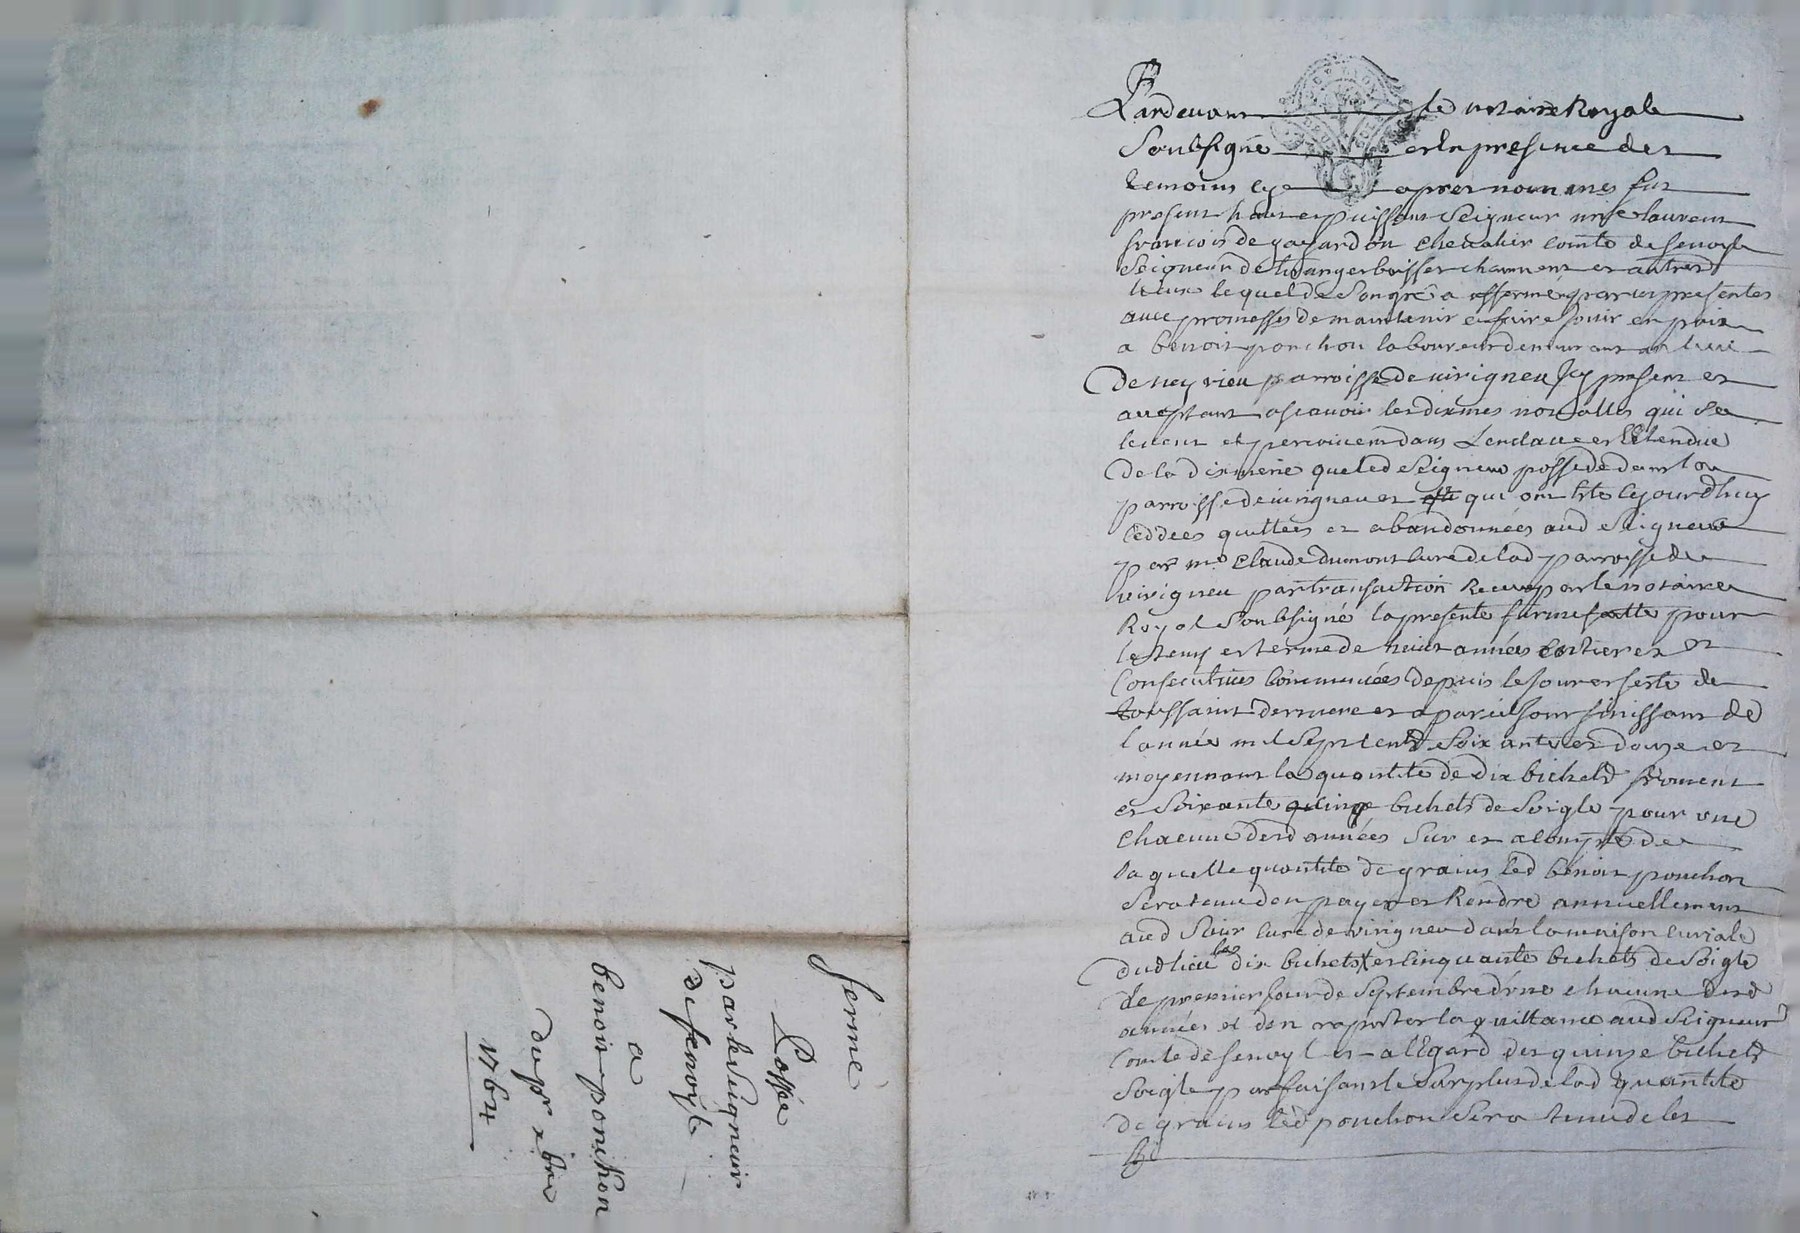 ferme
passée
par le Seigneur
de fenoyl
a
benoit ponchon
du pr xbre
1764
Pardevant le notaire Royale
Soubsigné et en presence des
temoins cy apres nommes fut
present haut et puissant Seigneur mre laurent
francois de gayardon chevalier comte de fenoyl
Seigneur de et autres
lieux lequel de Son gré a affermé par ces presentes
avec promesses de maintenir et faire jouir en paix
a benoit ponchon laboureur demeurant au lieu
de neyrieu parroisse de virigneu Icy present et
acceptant ascavoir les dixmes novalles qui se
levent et percoivent dans Lenclave et Etendue
de la dixmerie que led Seigneur possede dans la
parroisse de virigneu et qui ont été cejourdhuy
ceddees quittees et abandonnées aud Seigneur
par mre Claude dumont curé de lad parroisse de
virigneu par transaction Recue par le notaire
Royal Soubsigné la presente ferme faitte pour
le tems et terme de huit années entieres et
Consecutives commencées depuis le jour et feste de
toussaint derniere et a pareil jour finissant de
lannée mil Sept cent Soixante et douze et
moyennant la quantité de dix bichets froment
et Soixante quinze bichets de Soigle pour une
chacune desd années Sur et a compte de
la quelle quantité de grains led benoit ponchon
Sera tenu den payer et Rendre annuellement
aud Sieur curé de virigneu dans la maison curiale
dud lieu les dix bichets et cinquante bichets de Soigle
le premier jour de Septembre dune chacune desd
années et den raporter la quittance aud Seigneur
Comte de fenoyl et a lEgard des quinze bichets
Soigle parfaisant le Surplus de lad quantité
de grains led ponchon Sera tenu de les